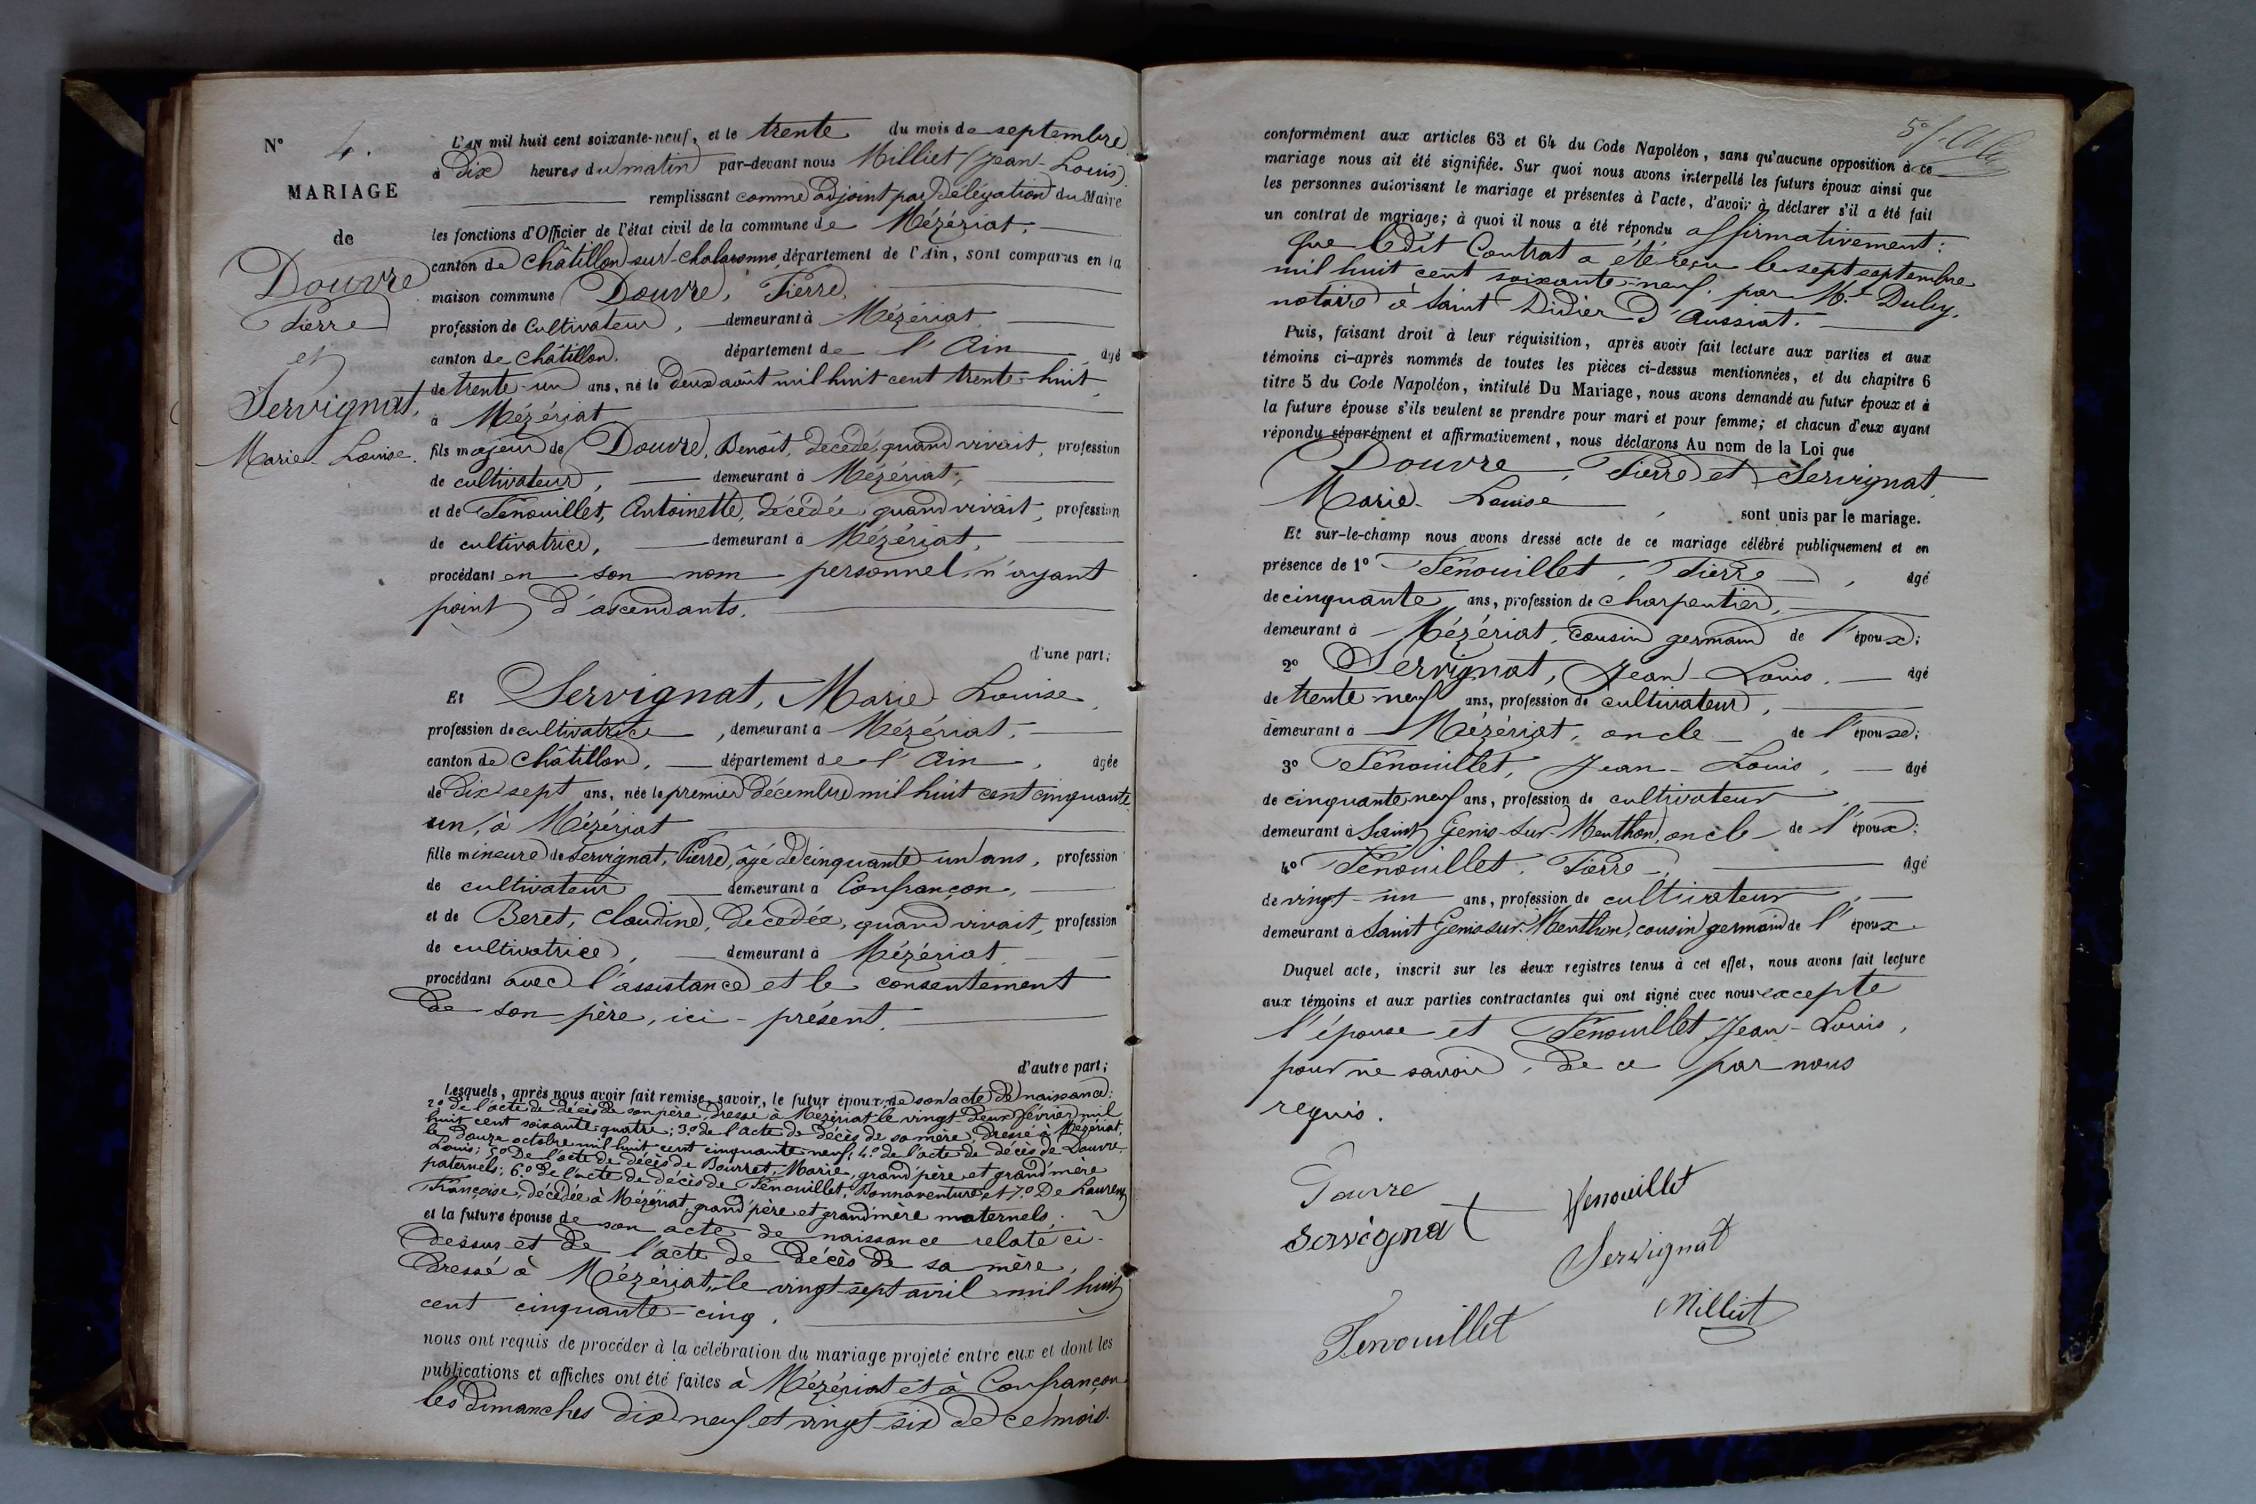 N° 4.
MARIAGE
de
Douvre
Pierre
et
Servignat,
Marie-Louise.
L'AN mil huit cent soixante-neuf, et le trente du mois de septembre
à dix heures du matin par-devant nous Milliet (Jean-Louis)
remplissant comme adjoint par délégation du Maire
les fonctions d'Officier de l'état civil de la commune de Mézériat,
canton de Châtillon-sur-Chalaronne, département de l'Ain, sont comparus en la
maison commune Douvre, Pierre,
profession de Cultivateur, demeurant à Mézériat
canton de Châtillon, département de l'Ain âgé
de trente-un ans, né le deux août mil huit cent trente-huit
à Mézériat
fils majeur de Douvre, Benoît, décédé, quand vivait, profession
de cultivateur, demeurant à Mézériat,
et de Fénouillet, Antoinette, décédée, quand vivait, profession
de cultivatrice, demeurant à Mézériat,
procédant en son nom personnel, n'ayant
point d'ascendants.
d'une part;
Et Servignat, Marie Louise,
profession de cultivatrice, demeurant à Mézériat,
canton de Châtillon, département de l'Ain, âgée
de dix sept ans, née le premier décembre mil huit cent cinquante
un, à Mézériat
fille mineure de Servignat, Pierre, âgé de cinquante-un ans, profession
de cultivateur demeurant à Confrançon,
et de Beret, Claudine, décédée, quand vivait, profession
de cultivatrice, demeurant à Mézériat
procédant avec l'assistance et le consentement
de son père, ici-présent.
d'autre part;
Lesquels, après nous avoir fait remise, savoir, le futur époux: de son acte de naissance;
2° de l'acte de décès de son père, dressé à Mézériat le vingt-deux février mil
huit cent soixante quatre; 3° de l'acte de décès de sa mère, dressé à Mézériat,
le douze octobre mil huit cent cinquante neuf; 4° de l'acte de décès de Douvre,
Louis; 5° De l'acte de décès de Bourret, Marie, grand'père et grand'mère
paternels; 6° de l'acte de décès de Fénouillet, Bonnaventure et 7° De Laurent
Françoise, décédée à Mézériat, grand'père et grand'mère maternels;
et la future épouse de son acte de naissance relaté ci-
dessus et de l'acte de décès de sa mère,
dressé à Mézériat, le vingt-sept avril mil huit
cent cinquante-cinq,
nous ont requis de procéder à la célébration du mariage projeté entre eux et dont les
publications et affiches ont été faites à Mézériat et à Confrançon
les dimanches dix neuf et vingt-six de ce mois.
conformément aux articles 63 et 64 du Code Napoléon, sans qu'aucune opposition à ce
mariage nous ait été signifiée. Sur quoi nous avons interpellé les futurs époux ainsi que
les personnes autorisant le mariage et présentes à l'acte, d'avoir à déclarer s'il a été fait
un contrat de mariage; à quoi il nous a été répondu affirmativement:
que ledit Contrat a été reçu le sept septembre
mil huit cent soixante-neuf, par Me Duby,
notaire à Saint Didier d'Aussiat.
Puis, faisant droit à leur réquisition, après avoir fait lecture aux parties et aux
témoins ci-après nommés de toutes les pièces ci-dessus mentionnées, et du chapitre 6
titre 5 du Code Napoléon, intitulé Du Mariage, nous avons demandé au futur époux et à
la future épouse s'ils veulent se prendre pour mari et pour femme; et chacun d'eux ayant
répondu séparément et affirmativement, nous déclarons Au nom de la Loi que
Douvre, Pierre et Servignat
Marie-Louise, sont unis par le mariage.
Et sur-le-champ nous avons dressé acte de ce mariage célébré publiquement et en
présence de 1° Fénouillet, Pierre, âgé
de cinquante ans, profession de charpentier,
demeurant à Mézériat, cousin germain de l'époux;
2° Servignat, Jean-Louis, âgé
de trente-neuf ans, profession de cultivateur,
demeurant à Mézériat, oncle de l'épouse;
3° Fénouillet, Jean-Louis, âgé
de cinquante-neuf ans, profession de cultivateur
demeurant à Saint Genis-sur-Menthon, oncle de l'époux;
4° Fénouillet, Pierre, âgé
de vingt-un ans, profession de cultivateur,
demeurant à Saint Genis sur-Menthon, cousin germain de l'époux.
Duquel acte, inscrit sur les deux registres tenus à cet effet, nous avons fait lecture
aux témoins et aux parties contractantes qui ont signé avec nous excepté
l'épouse et Fénouillet Jean-Louis,
pour ne savoir, de ce par nous
requis.
Douvre Fenouillet
Servignat Servignat
Fenouillet Milliet